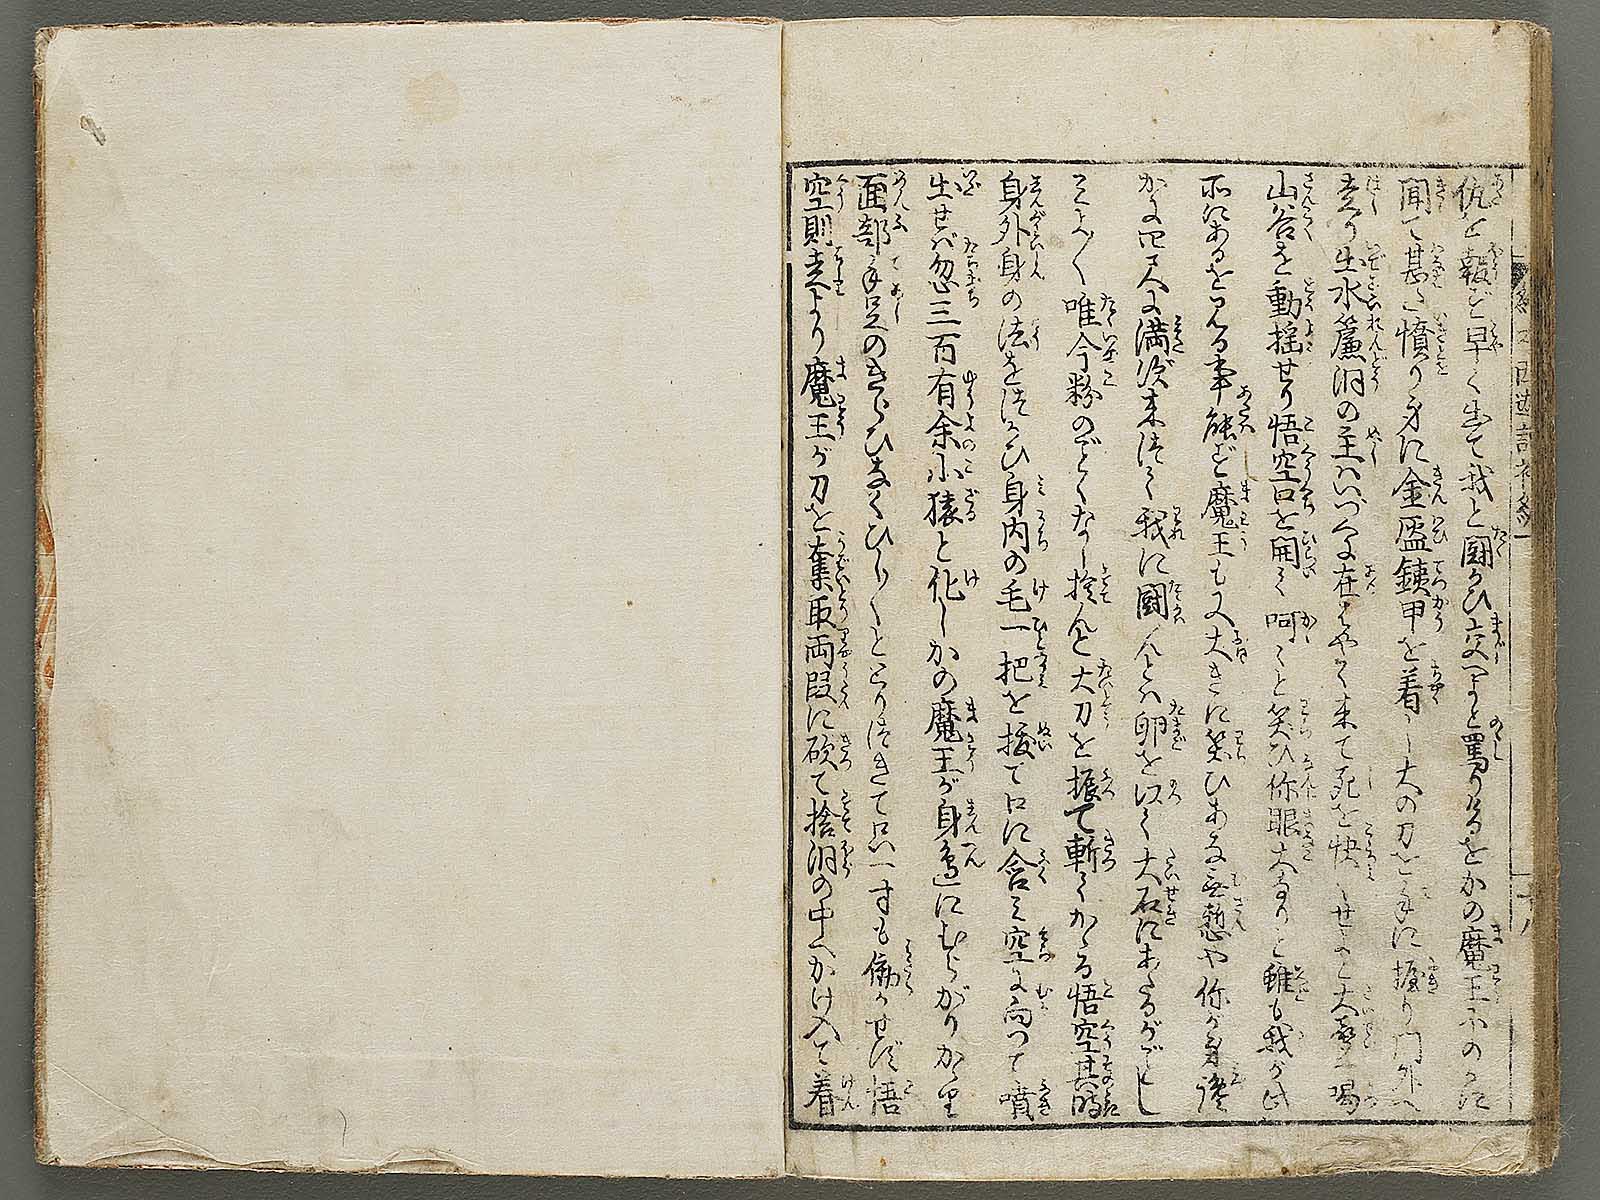 仇を報ず早く出て我と闘ひ交へよと罵りけるをかの魔王ほのかに
聞て甚だ憤り身に金盔銕甲を着し大の刀を手に握り門外へ
走り出水簾洞の主はいづくに在はやく来て死を快くせよと大声に喝
山谷を動揺せり悟空口を開て呵々と笑ひ你眼大なりと雖も我が此
所にあるを見る事能ず魔王も又大きに笑ひあな無慙や你が身漸
かに四尺に満ず来つて我に闘んとは卵を以て大石にあたるがごとし
いよ〳〵唯今粉のごとくなし捨んと大刀を振て斬てかゝる悟空其時
身外身の法をつかひ身内の毛一把を抜て口に含み空に向つて噴
出せば忽三百有余小猿と化しかの魔王が身辺にむらがりかゝり
面部手足のきらひなくひし〳〵ととりつきて只一寸も働かせず悟
空則走より魔王が刀を奪取両段に砍て捨洞の中へかけ入て着